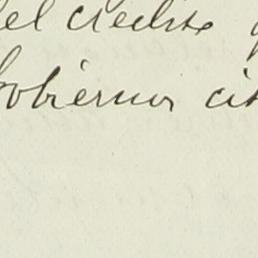 del credito
Gobierno cit